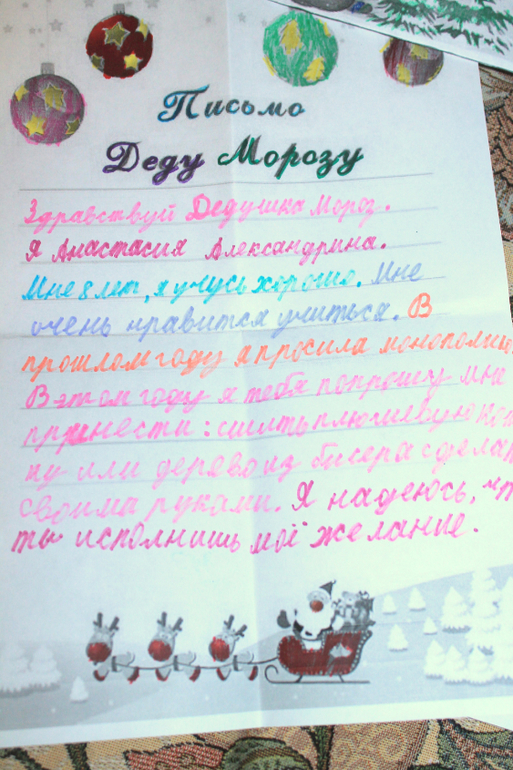 Письмо
Деду Морозу
Здравствуй Дедушка Мороз.
Я Анастасия Александрина.
Мне 8 лет, я учусь хорошо. Мне
очень нравится учиться. В
прошлом году я просила монополию.
В этом году я тебя попрошу мне
принести: сшить плюшевую
ну или дерево из бисера сделать
своима руками. Я надеюсь, чт
ты исполнишь моё желание.